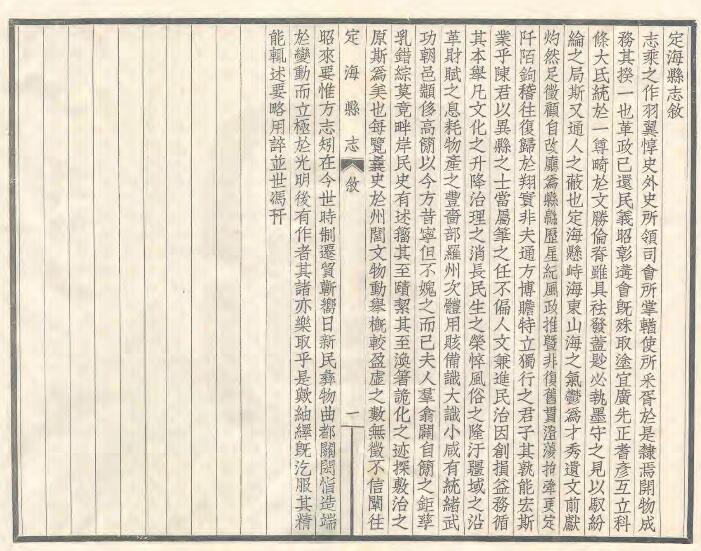 定海縣志敘
志乘之作羽翼惇史外史所領司會所掌輶使所釆胥於是隸焉開物成
務其揆一也革政已還民義昭彰遺會旣殊取塗宜廣先正耆彦互立科
條大氐統於一尊畸於文勝倫脊雖具袪發蓋尟必執墨守之見以馭紛
綸之局斯又通人之蔽也定海懸峙海東山海之氣鬱爲才秀遺文前獻
灼然足徵顧自改廳爲縣縣歷星紀風政推暨非復舊貫澄蕩抬舉更定
阡陌鉤稽往復歸於翔實非夫通方博贍特立獨行之君子其孰能宏斯
業乎陳君以異縣之士當屬筆之任不偏人文兼進民治因創損益務循
其本舉凡文化之升降治理之消長民生之榮悴風俗之隆汙疆域之沿
革財賦之息耗物產之豐嗇部羅州次體用賅備識大識小咸有統緒武
功朝邑顓侈高簡以今方昔寧但不媿之而已夫人羣翕闢自簡之鉅萃
亂錯綜莫竟畔岸民史有述籀其至賾絜其至渙箸詭化之迹探敷治之
原斯爲美也每覽曩史於州閭文物動舉槪較盈虛之數無徵不信闡往
定海縣志 敘 一
昭來要惟方志矧在今世時制遷貿嶄嚮日新民彝物曲都關閎恉造端
於變動而立極於光明後有作者其諸亦樂取乎是歟紬繹旣汔服其精
能輒述要略用誶並世馮幵